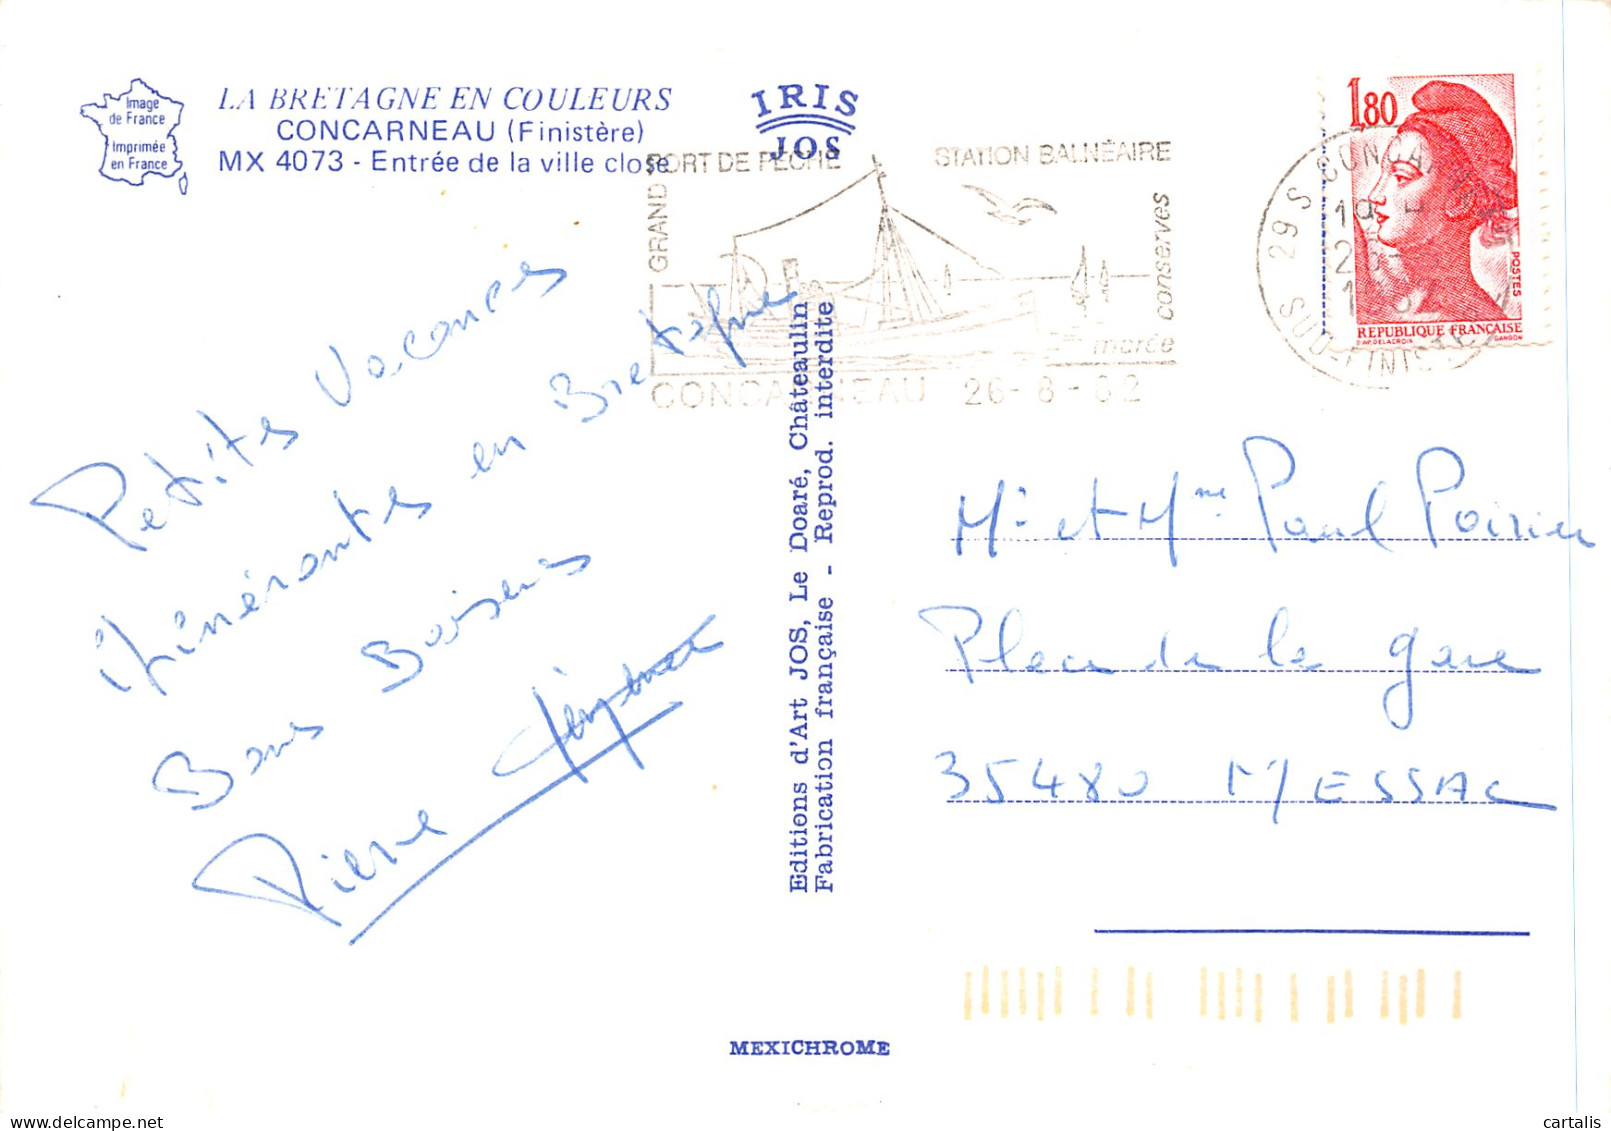 Image
de France
Imprimée
en France
LA BRETAGNE EN COULEURS
CONCARNEAU (Finistère)
MX 4073 - Entrée de la ville close
IRIS
JOS
GRAND PORT DE PECHE
STATION BALNÉAIRE
conserves
marée
CONCARNEAU 26-8-82
29 S CONCARNEAU
SUD-FINISTERE
1,80
POSTES
REPUBLIQUE FRANÇAISE
D'AP. DELACROIX GANDON
Petites Vacances
itinérantes en Bretagne
Bons Baisers
Pierre
Editions d'Art JOS, Le Doaré, Châteaulin
Fabrication française - Reprod. interdite
Mr et Mme Paul Poirier
Place de la gare
35480 MESSAC
MEXICHROME
cartalis